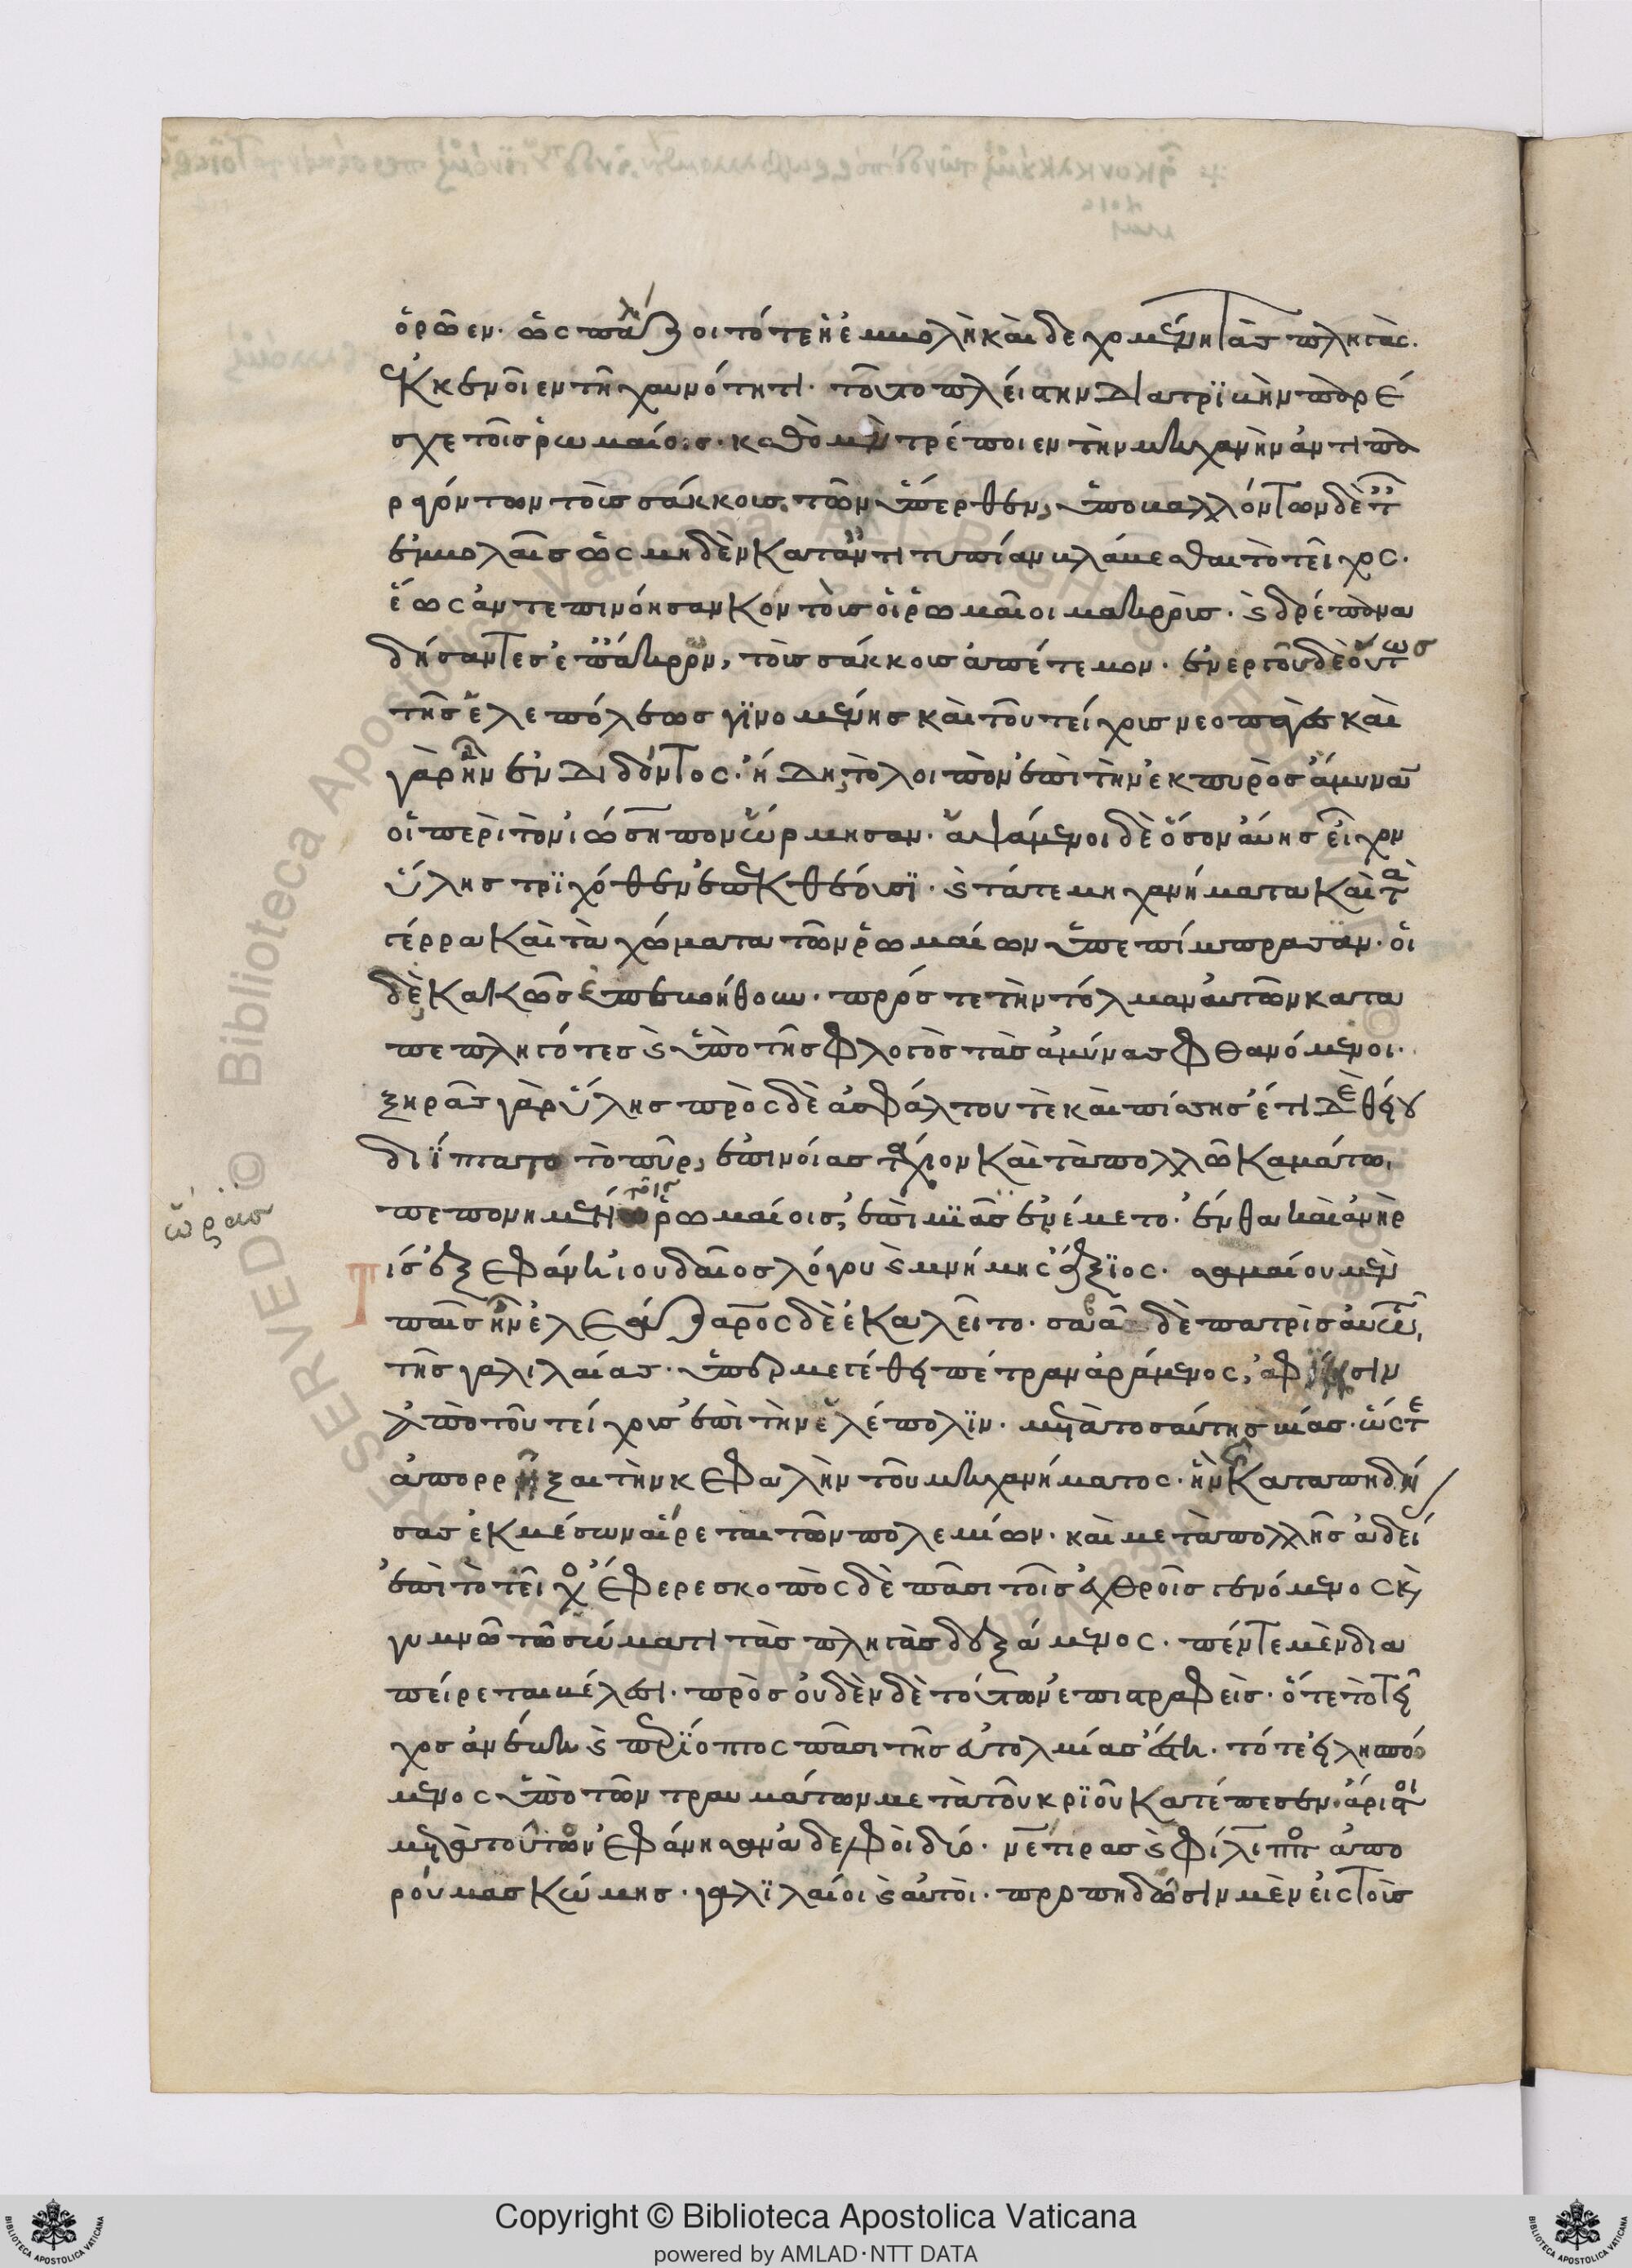 ὁρῶεν· ὡς πλάζοιτό τε ἡ ἐμβολὴ καὶ δεχομένη τὰς πληγὰς
κενοῖεν τῇ χαυνότητι· τοῦτο πλείστην διατριβὴν παρέ
σχε τοῖς ῥωμαίοις· καθὸ μὲν τρέποιεν τὴν μηχανὴν ἀντιπα
ραγόντων τοῖς σάκκοις τῶν ὕπερθεν, ὑποβαλλόντων δὲ τ
ἐμβολαῖς ὡς μηδὲν κατ' ἀντιτυπίαν βλάπτεσθαι τὸ τεῖχος·
ἕως ἀντεπινόησαν κοντοὺς οἱ ῥωμαῖοι μακροὺς· καὶ δρέπανα
δήσαντες ἐπ' ἄκρον, τοὺς σάκκους ἀπέτεμον· ἐνεργοῦ δὲ οὕτως
τῆς ἑλεπόλεως γινομένης καὶ τοῦ τείχους νεοπαγὲς καὶ
γὰρ ἦν ἐνδιδόντος· ἤδη τὸ λοιπὸν ἐπὶ τὴν ἐκ πυρὸς ἄμυναν
οἱ περὶ τὸν ἰώσηπον ὥρμησαν· ἁψάμενοι δὲ ὅσον αὔης εἶχον
ὕλης τριχόθεν ἐπεκθέουσι· καὶ τά τε μηχανήματα καὶ τὰ
γέρρα καὶ τὰ χώματα τῶν ῥωμαίων ὑπεπίμπρασαν· οἱ
δὲ κακῶς ἐπεβοήθουν· πρός τε τὴν τόλμαν αὐτῶν κατα
πεπληγότες καὶ ὑπὸ τῆς φλογὸς τὰς ἀμύνας φθανόμενοι·
ξηρᾶς γὰρ ὕλης πρὸς δὲ ἀσφάλτου τε καὶ πίσσης ἔτι δὲ θείου
διίπτατο τὸ πῦρ, ἐπινοίας τάχιον καὶ τὰ πολλῶ καμάτω
πεπονημένα τοῖς ῥωμαίοις, ἐπὶ μιᾶς ἐνέμετο· ἔνθα καὶ ἀνὴρ
ὥρας
τίς ἐξεφάνη ἰουδαῖος λόγου καὶ μνήμης ἄξιος· σαμαίου μὲν
παῖς ἦν ἐλεάζαρος δὲ ἐκαλεῖτο· σαβὰ δὲ πατρὶς αὐτῶ
τῆς γαλιλαίας· ὑπερμεγέθη πέτραν ἀράμενος, ἀφίησιν
ἀπὸ τοῦ τείχους ἐπὶ τὴν ἑλέπολιν· μετὰ τοσαύτης βίας· ὥστε
ἀπορρῆξαι τὴν κεφαλὴν τοῦ μηχανήματος· ἣν καταπηδή
σας ἐκ μέσων αἴρεται τῶν πολεμίων· καὶ μετὰ πολλῆς ἀδεί
ἐπὶ τὸ τεῖχος ἔφερε σκοπὸς δὲ πᾶσι τοῖς ἐχθροῖς γενόμενος καὶ
γυμνῶ τῶ σώματι τὰς πληγὰς δεξάμενος· πέντε μὲν δια
πείρεται βέλεσι· πρὸς οὐδὲν δὲ τούτων ἐπιστραφεὶς· ὅτε τὸ τεῖ
χος ἀνέβη καὶ περίοπτος πᾶσι τῆς εὐτολμίας ἔστη· τότε εἰλησπώ
μενος ὑπὸ τῶν τραυμάτων μετὰ τοῦ κριοῦ κατέπεσεν· ἄριστοι
μετὰ τοῦτον ἐφάνησαν ἀδελφοὶ δύο· νετίρας καὶ φίλιππος ἀπὸ
ρούμας κώμης· γαλιλαῖοι καὶ αὐτοὶ· προπηδῶσιν μὲν εἰς τοὺς